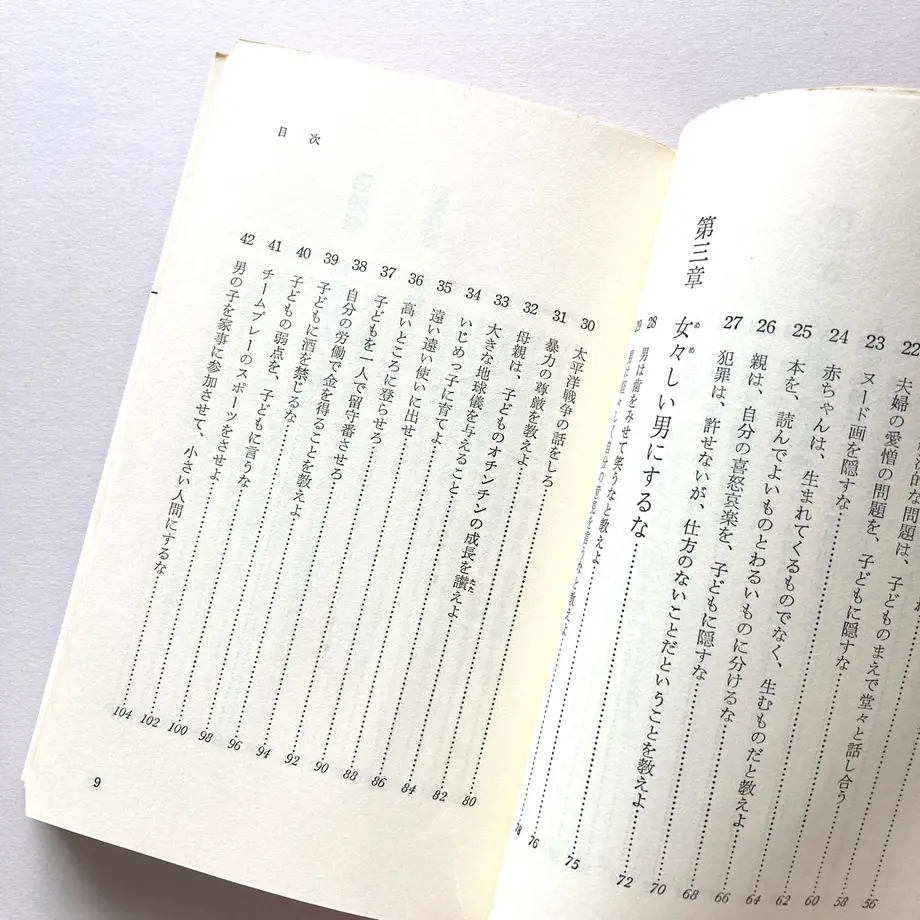 的な問題は、子どものまえで堂々と話し合う
22 夫婦の愛憎の問題を、子どもに隠すな
23 ヌード画を隠すな
24 赤ちゃんは、生まれてくるものでなく、生むものだと教えよ
25 本を、読んでよいものとわるいものに分けるな
26 親は、自分の喜怒哀楽を、子どもに隠すな
27 犯罪は、許せないが、仕方のないことだということを教えよ
56 58 60 62 64 66 68 70 72
第三章 女々しい男にするな 75
28 男は歯をみせて笑うなと教えよ 76
29 男は軽々しく自分の意見を言うなと教えよ 78
目次
30 太平洋戦争の話をしろ 80
31 暴力の尊厳を教えよ 82
32 母親は、子どものオチンチンの成長を讃えよ 84
33 大きな地球儀を与えること 86
34 いじめっ子に育てよ 88
35 遠い遠い使いに出せ 90
36 高いところに登らせろ 92
37 子どもを一人で留守番させろ 94
38 自分の労働で金を得ることを教えよ 96
39 子どもに酒を禁じるな 98
40 子どもの弱点を、子どもに言うな 100
41 チームプレーのスポーツをさせよ 102
42 男の子を家事に参加させて、小さい人間にするな 104
9